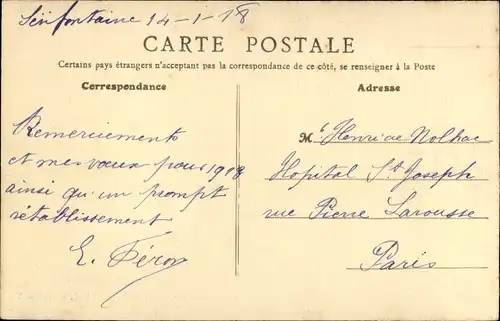 Sérifontaine 14-1-18
CARTE POSTALE
Certains pays étrangers n'acceptant pas la correspondance de ce côté, se renseigner à la Poste
Correspondance
Remerciements
et mes vœux pour 1918
ainsi qu'un prompt
rétablissement
E. Féron
Adresse
M. Henri de Nolhac
Hopital St Joseph
rue Pierre Larousse
Paris